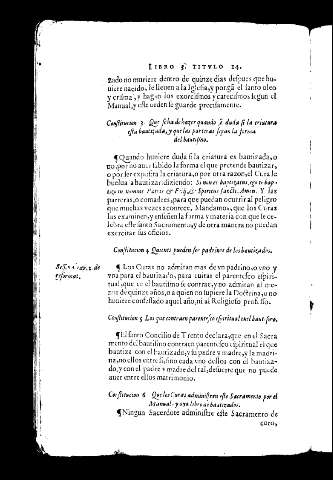 LIBRO 3. TITVLO 14.
zado no muriere dentro de quinze dias despues que hu-
uiere nacido, le lleuen a la Iglesia, y pongã el santo oleo
y crisma, y hagan los exorcismos y catecismos segun el
Manual, y este orden se guarde precisamente.
Constitucion 3. Que se ha de hazer quando ay duda si la criatura
esta bautizada, y que las parteras sepan la forma
del bautismo.
¶Quando huuiere duda si la criatura es bautizada, o
no, por no auer sabido la forma el que pretende bautizar,
o por ser expuesta la criatura, o por otra razon, el Cura le
buelua a bautizar diziendo: Si non es baptizatus, ego te bap-
tizo in nomine Patris & Filij, & Spiritus sancti. Amen. Y las
parteras, o comadres, para que puedan ocurrir al peligro
que muchas vezes acontece, Mandamos, que los Curas
las examinen, y enseñen la forma y materia con que se ce-
lebra este santo Sacramento, y de otra manera no puedan
exercitar sus oficios.
Constitucion 4 Quienes pueden ser padrinos de los bautizados.
Sess. 24. cap. 2. de
reformat.
¶Los Curas no admitan mas de vn padrino, o vno y
vna para el bautizado, para euitar el parentesco espiri-
tual, que en el bautismo se contrae, y no admitan al me-
nor de quinze años, o a quien no supiere la Doctrina, o no
huuiere confessado aquel año, ni al Religioso professo.
Constitucion 5 Los que contraen parentesco espiritual en el bautismo.
¶El santo Concilio de Trento declara, que en el Sacra
mento del bautismo contraen parentesco espiritual el que
bautiza con el bautizado, y su padre y madre, y la madri-
na, no ellos entre si, sino cada vno dellos con el bautiza-
do, y con el padre y madre del tal, de suerte que no pueda
auer entre ellos matrimonio.
Constitucion 6 Que los Curas administren este Sacramento por el
Manual, y aya libro de bautizados.
¶Ningun Sacerdote administre este Sacramento de
coro,